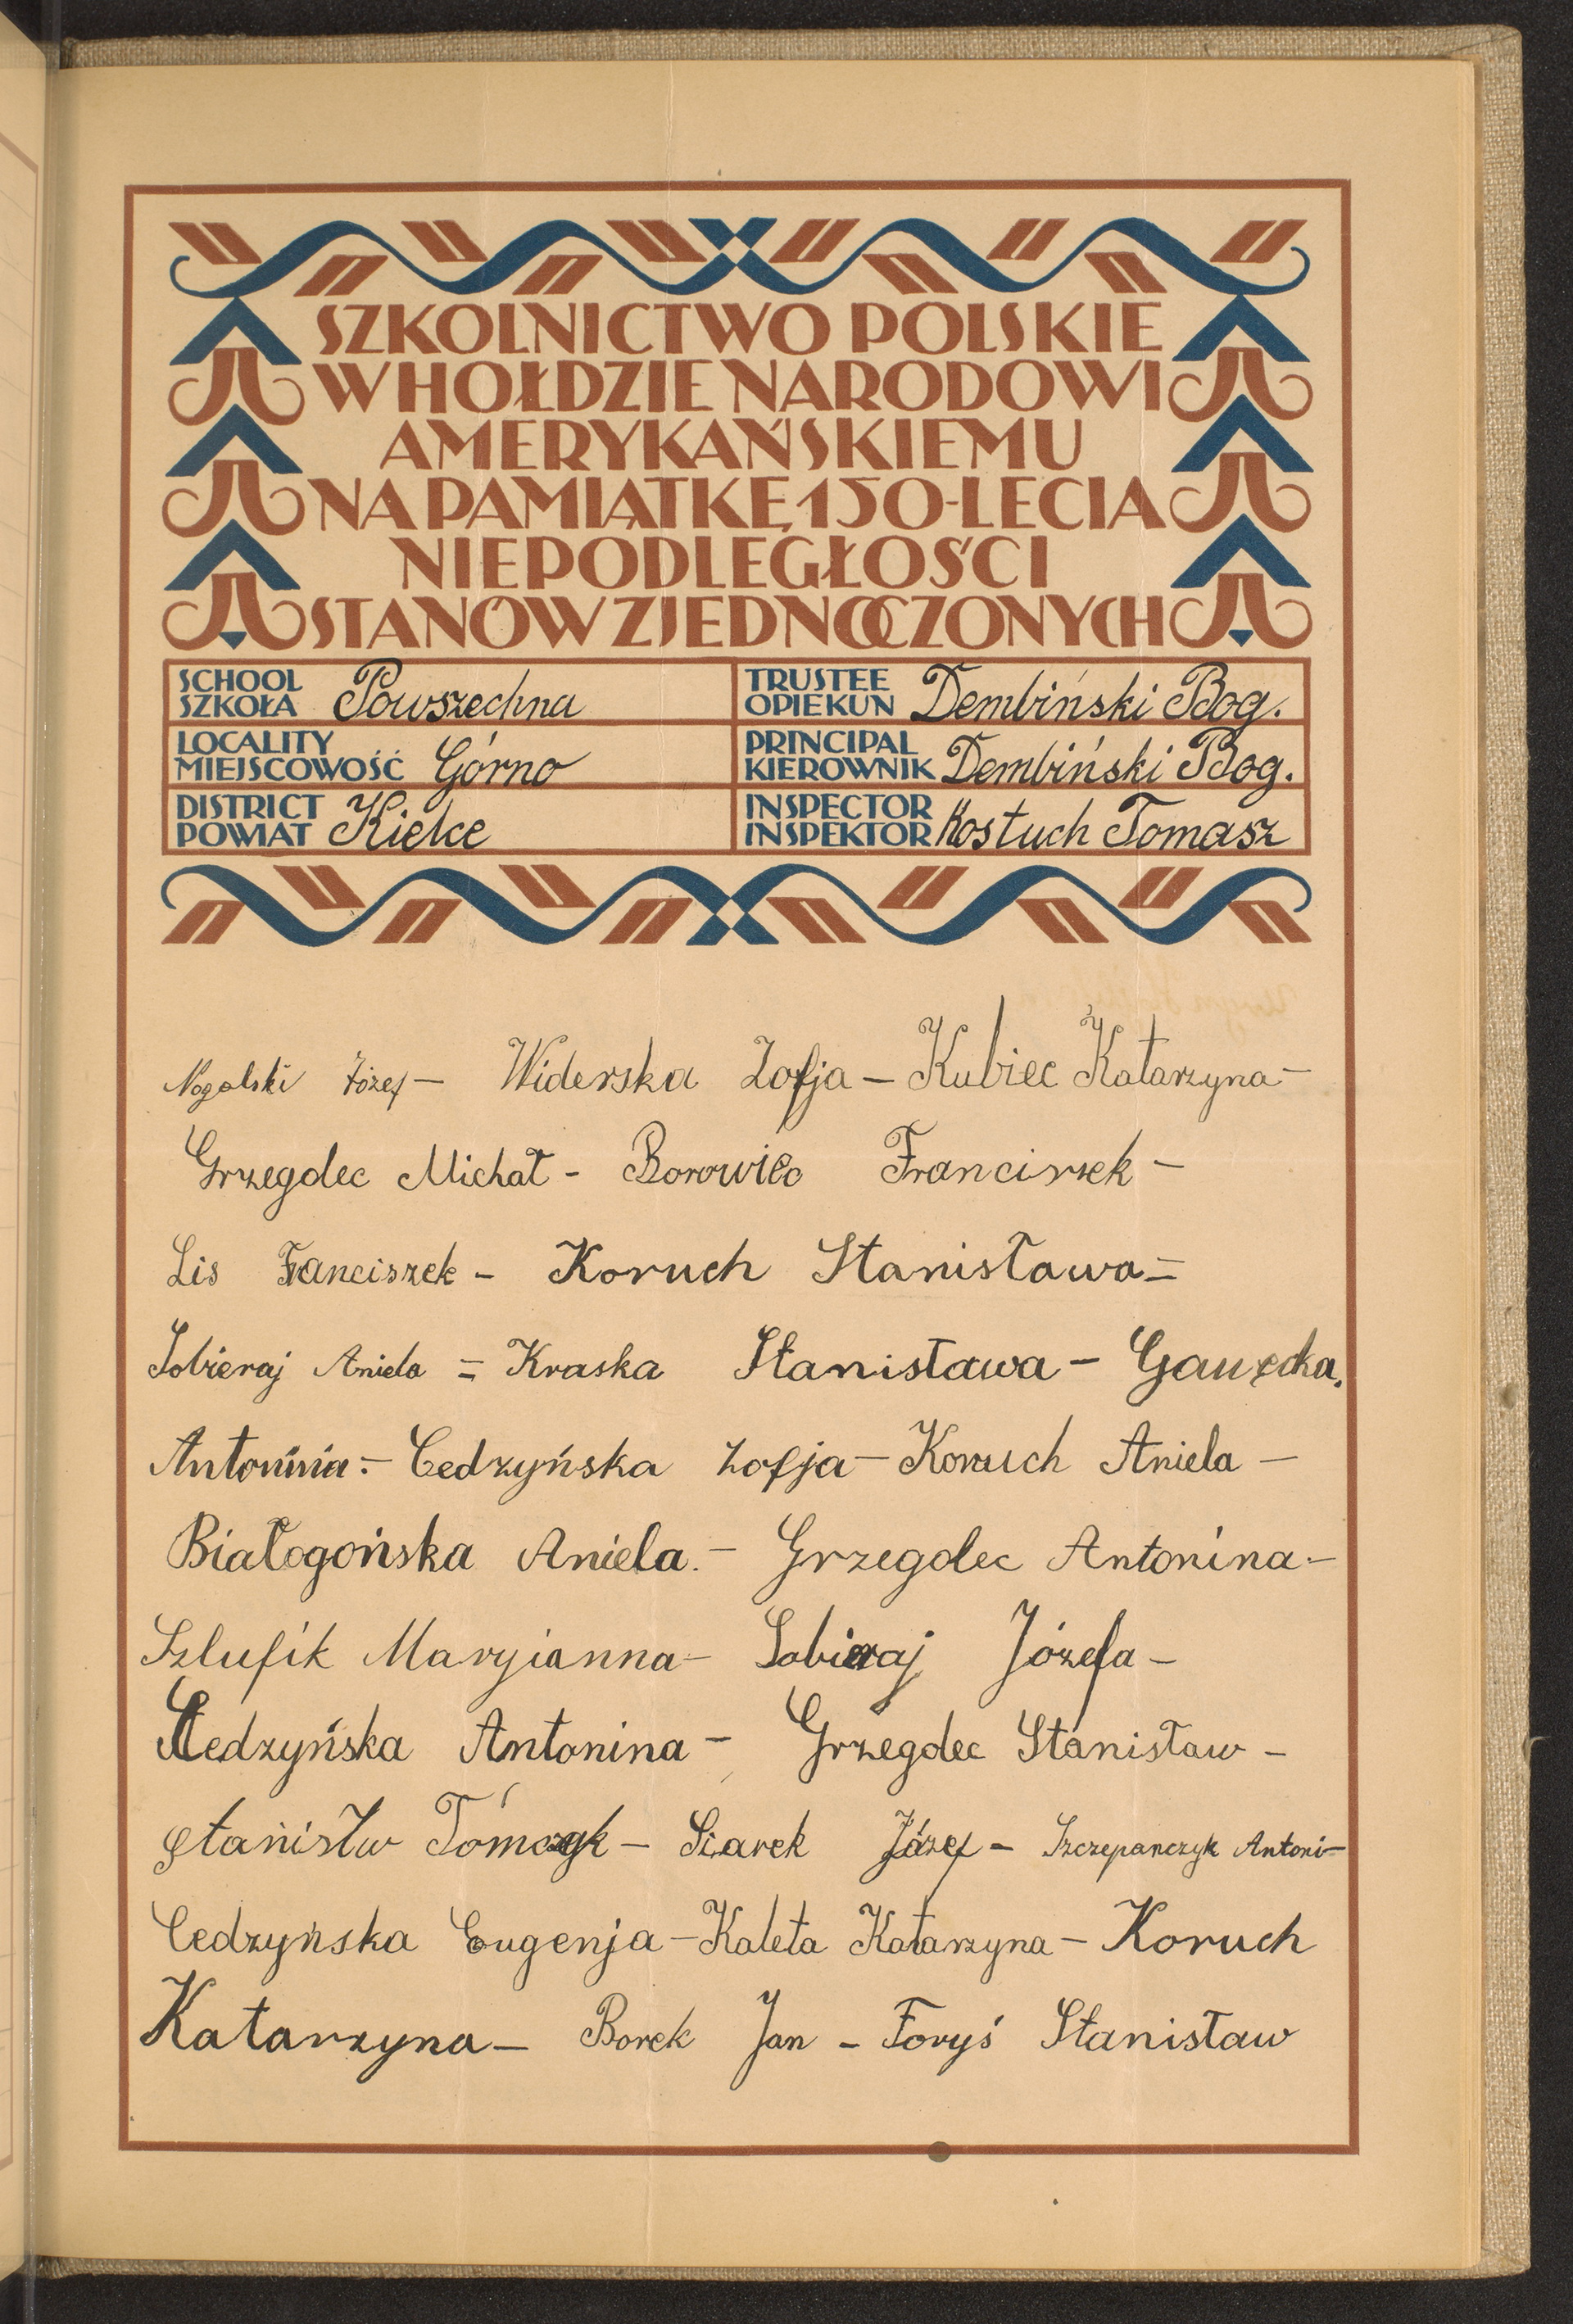 SZKOLNICTWO POLSKIE
W HOŁDZIE NARODOWI
AMERYKAŃSKIEMU
NA PAMIĄTKĘ 150-LECIA
NIEPODLEGŁOŚCI
STANÓW ZJEDNOCZONYCH
SCHOOL
SZKOŁA Powszechna
TRUSTEE
OPIEKUN Dembiński Bog.
LOCALITY
MIEJSCOWOŚĆ Górno
PRINCIPAL
KIEROWNIK Dembiński Bog.
DISTRICT
POWIAT Kielce
INSPECTOR
INSPEKTOR Kostuch Tomasz
Nogalski Józef – Widerska Zofja – Kubiec Katarzyna –
Grzegolec Michał – Borowiec Franciszek –
Lis Franciszek – Koruch Stanisława =
Sobieraj Aniela = Kraska Stanisława – Gawęcka.
Antonina – Cedzyńska Zofja – Koruch Aniela –
Białogońska Aniela. – Grzegolec Antonina –
Szlufik Maryjanna – Sobieraj Józefa –
Cedzyńska Antonina – Grzegolec Stanisław –
Stanisłw Tomczyk – Siarek Józef – Szczepanczyk Antoni –
Cedzyńska Eugenja – Kaleta Katarzyna – Koruch
Katarzyna – Borek Jan – Foryś Stanisław